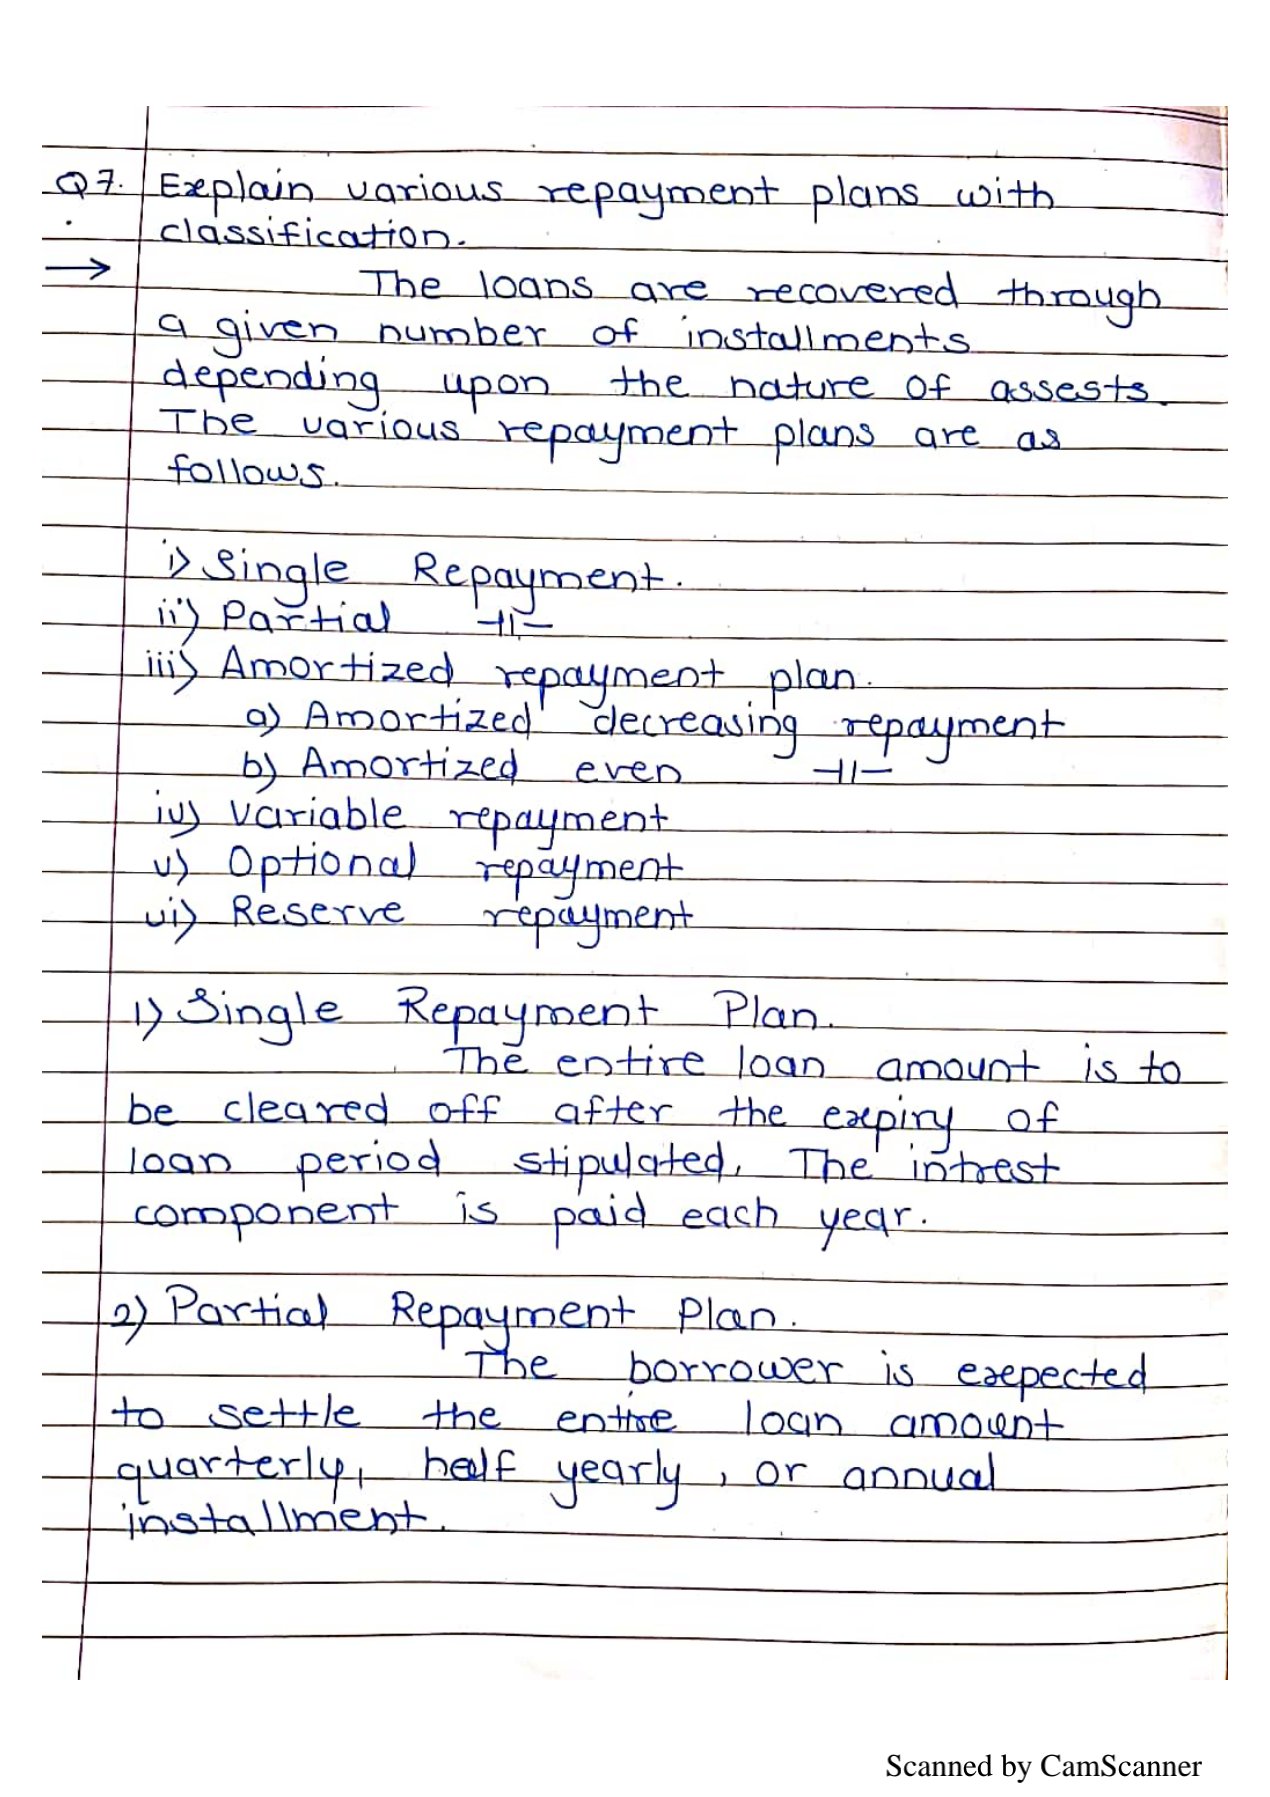 Q7. Explain various repayment plans with
classification.
→ The loans are recovered through
a given number of installments
depending upon the nature of assests.
The various repayment plans are as
follows.
i) Single Repayment.
ii) Partial -||-
iii) Amortized repayment plan.
a) Amortized decreasing repayment
b) Amortized even -||-
iv) Variable repayment
v) Optional repayment
vi) Reserve repayment
1) Single Repayment Plan.
The entire loan amount is to
be cleared off after the expiry of
loan period stipulated. The intrest
component is paid each year.
2) Partial Repayment Plan.
The borrower is expected
to settle the entire loan amount
quarterly, half yearly, or annual
installment.
Scanned by CamScanner